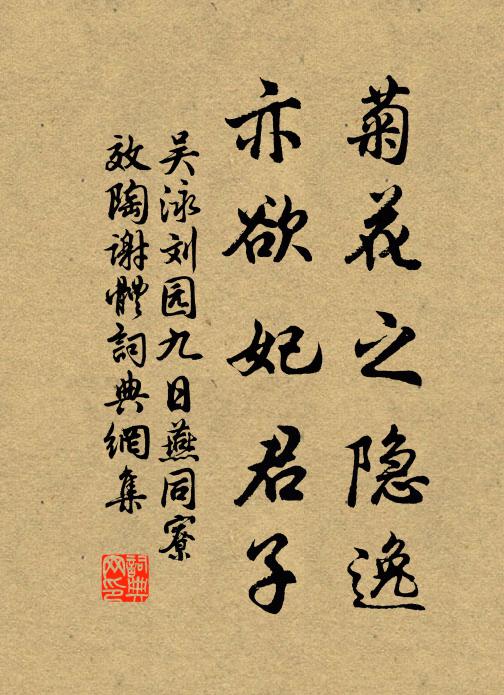 菊花之隐逸
亦欲妃君子
吴泳刘园九日燕同寮
效陶谢體詞典網集
詞典
网印